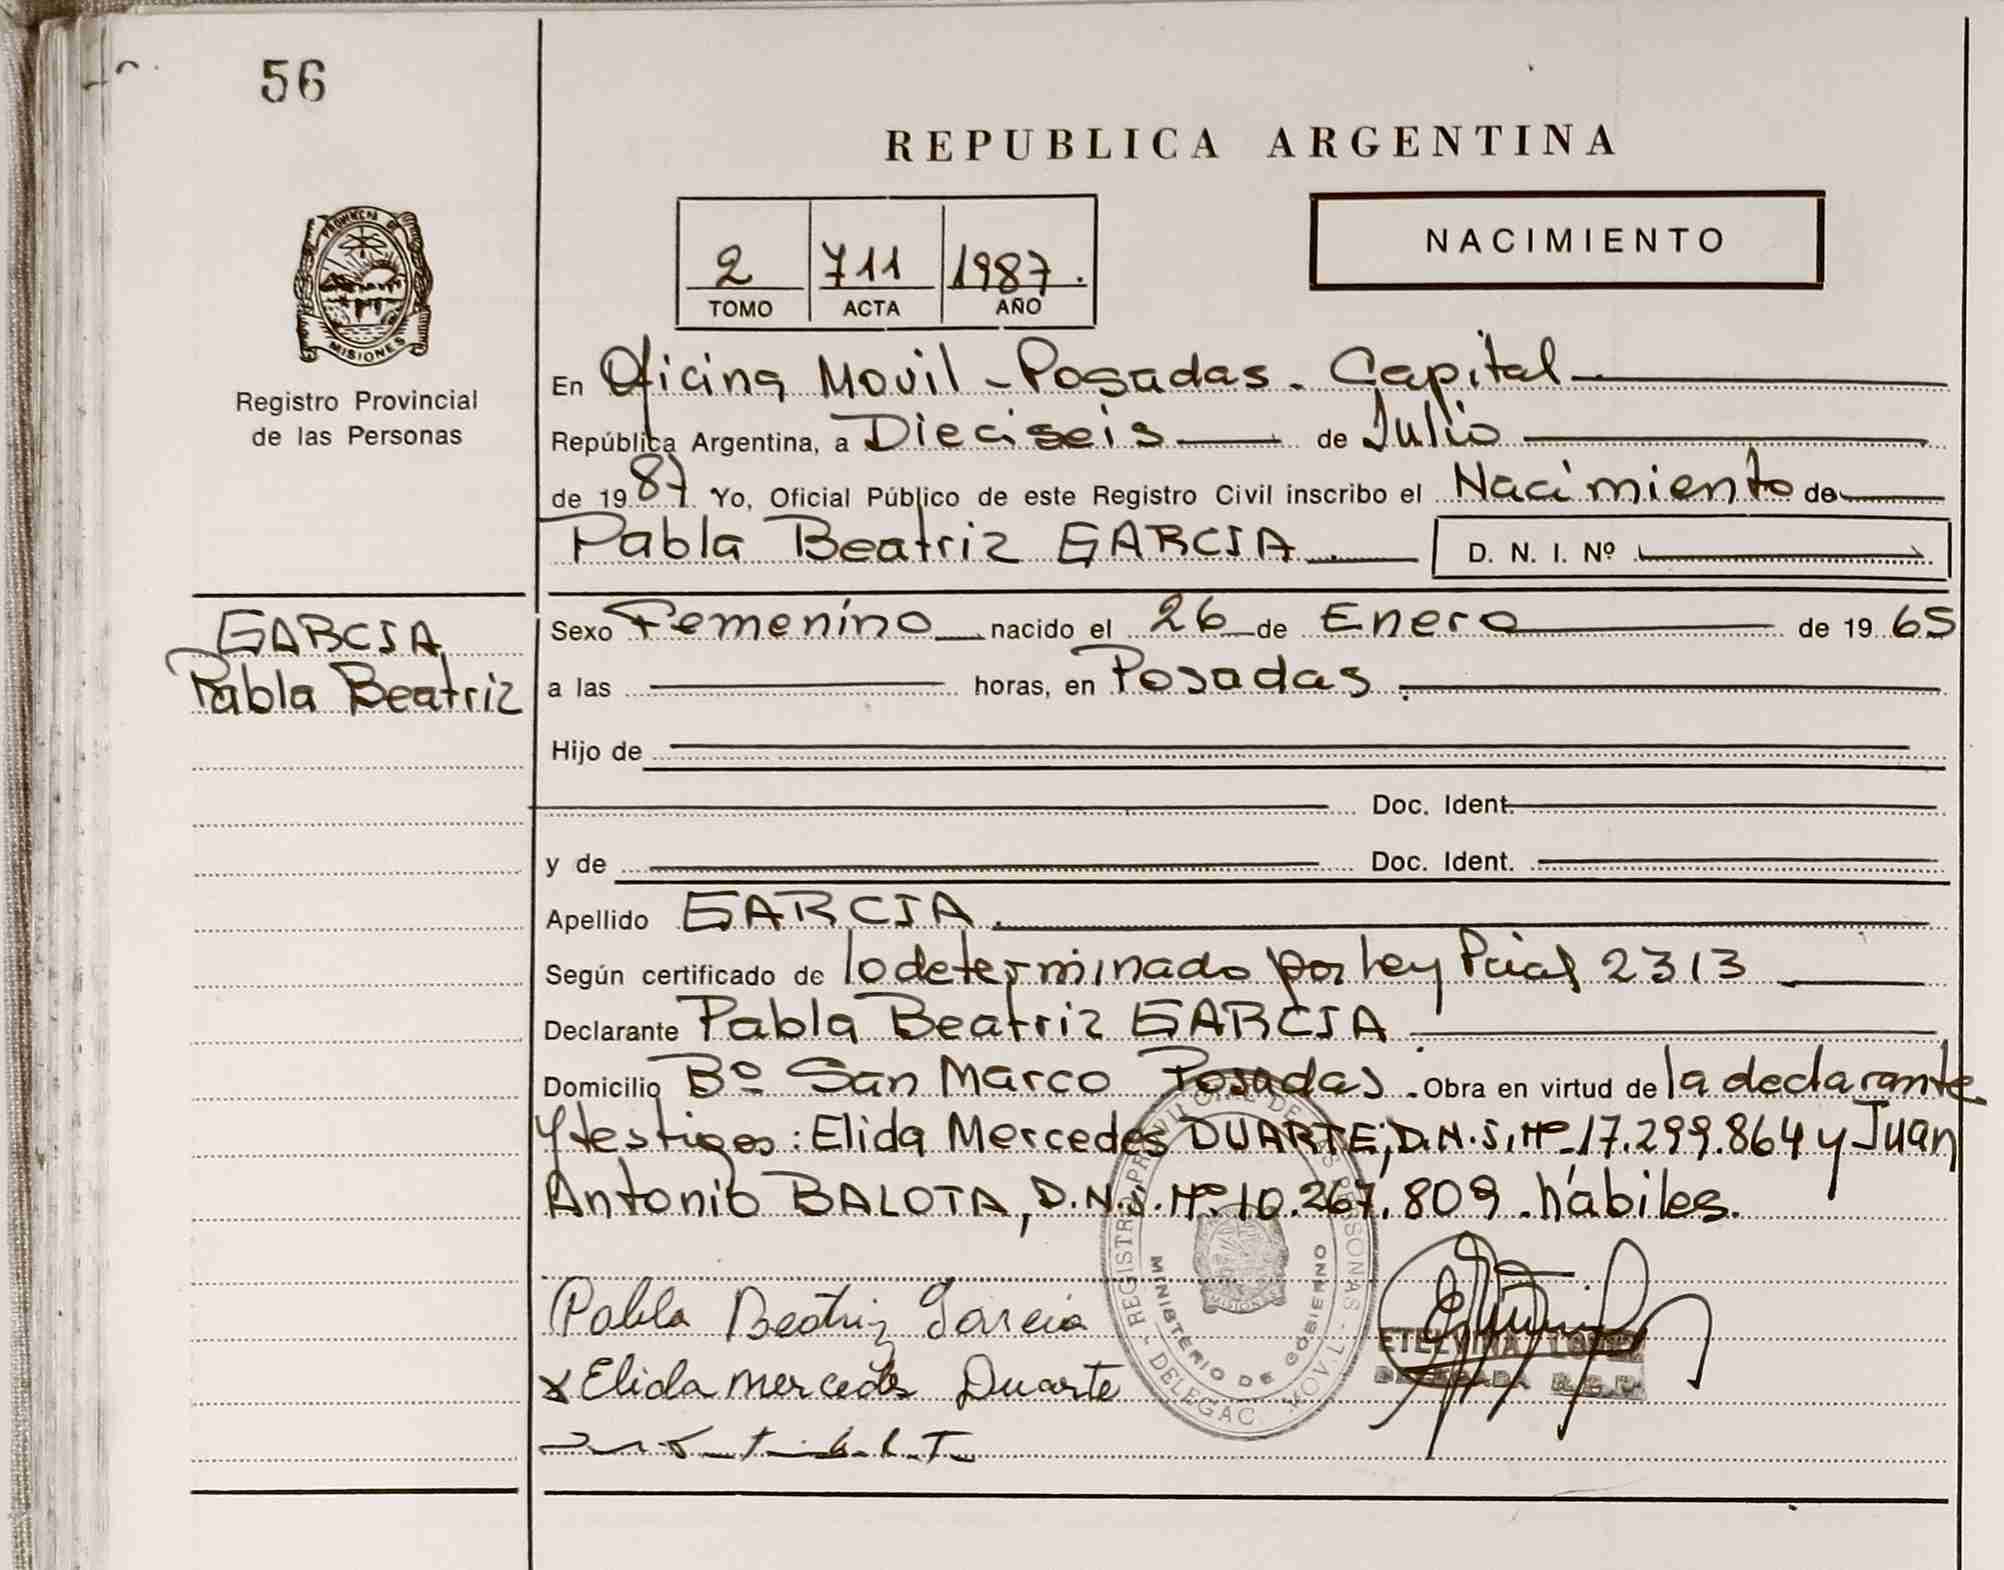 56
REPUBLICA ARGENTINA
NACIMIENTO
2 711 1987.
TOMO ACTA AÑO
PROVINCIA DE
MISIONES
Registro Provincial
de las Personas
En Oficina Movil - Posadas. Capital
República Argentina, a Dieciseis de Julio
de 1987. Yo, Oficial Público de este Registro Civil inscribo el Nacimiento de
Pabla Beatriz GARCIA. D. N. I. Nº
GARCIA
Pabla Beatriz
Sexo Femenino nacido el 26 de Enero de 1965
a las horas, en Posadas.
Hijo de
Doc. Ident.
y de Doc. Ident.
Apellido GARCIA.
Según certificado de lo determinado por Ley Pcial 2313
Declarante Pabla Beatriz GARCIA
Domicilio Bº San Marco Posadas. Obra en virtud de la declarante
y testigos: Elida Mercedes DUARTE, D.N.I. Nº 17.299.864 y Juan
Antonio BALOTA, D.N.I. Nº 10.267.809. hábiles.
Pabla Beatriz Garcia
x Elida mercedes Duarte
REGISTRO PROVINCIAL DE LAS PERSONAS - DELEGAC. MOVIL
MINISTERIO DE GOBIERNO
ETELVINA